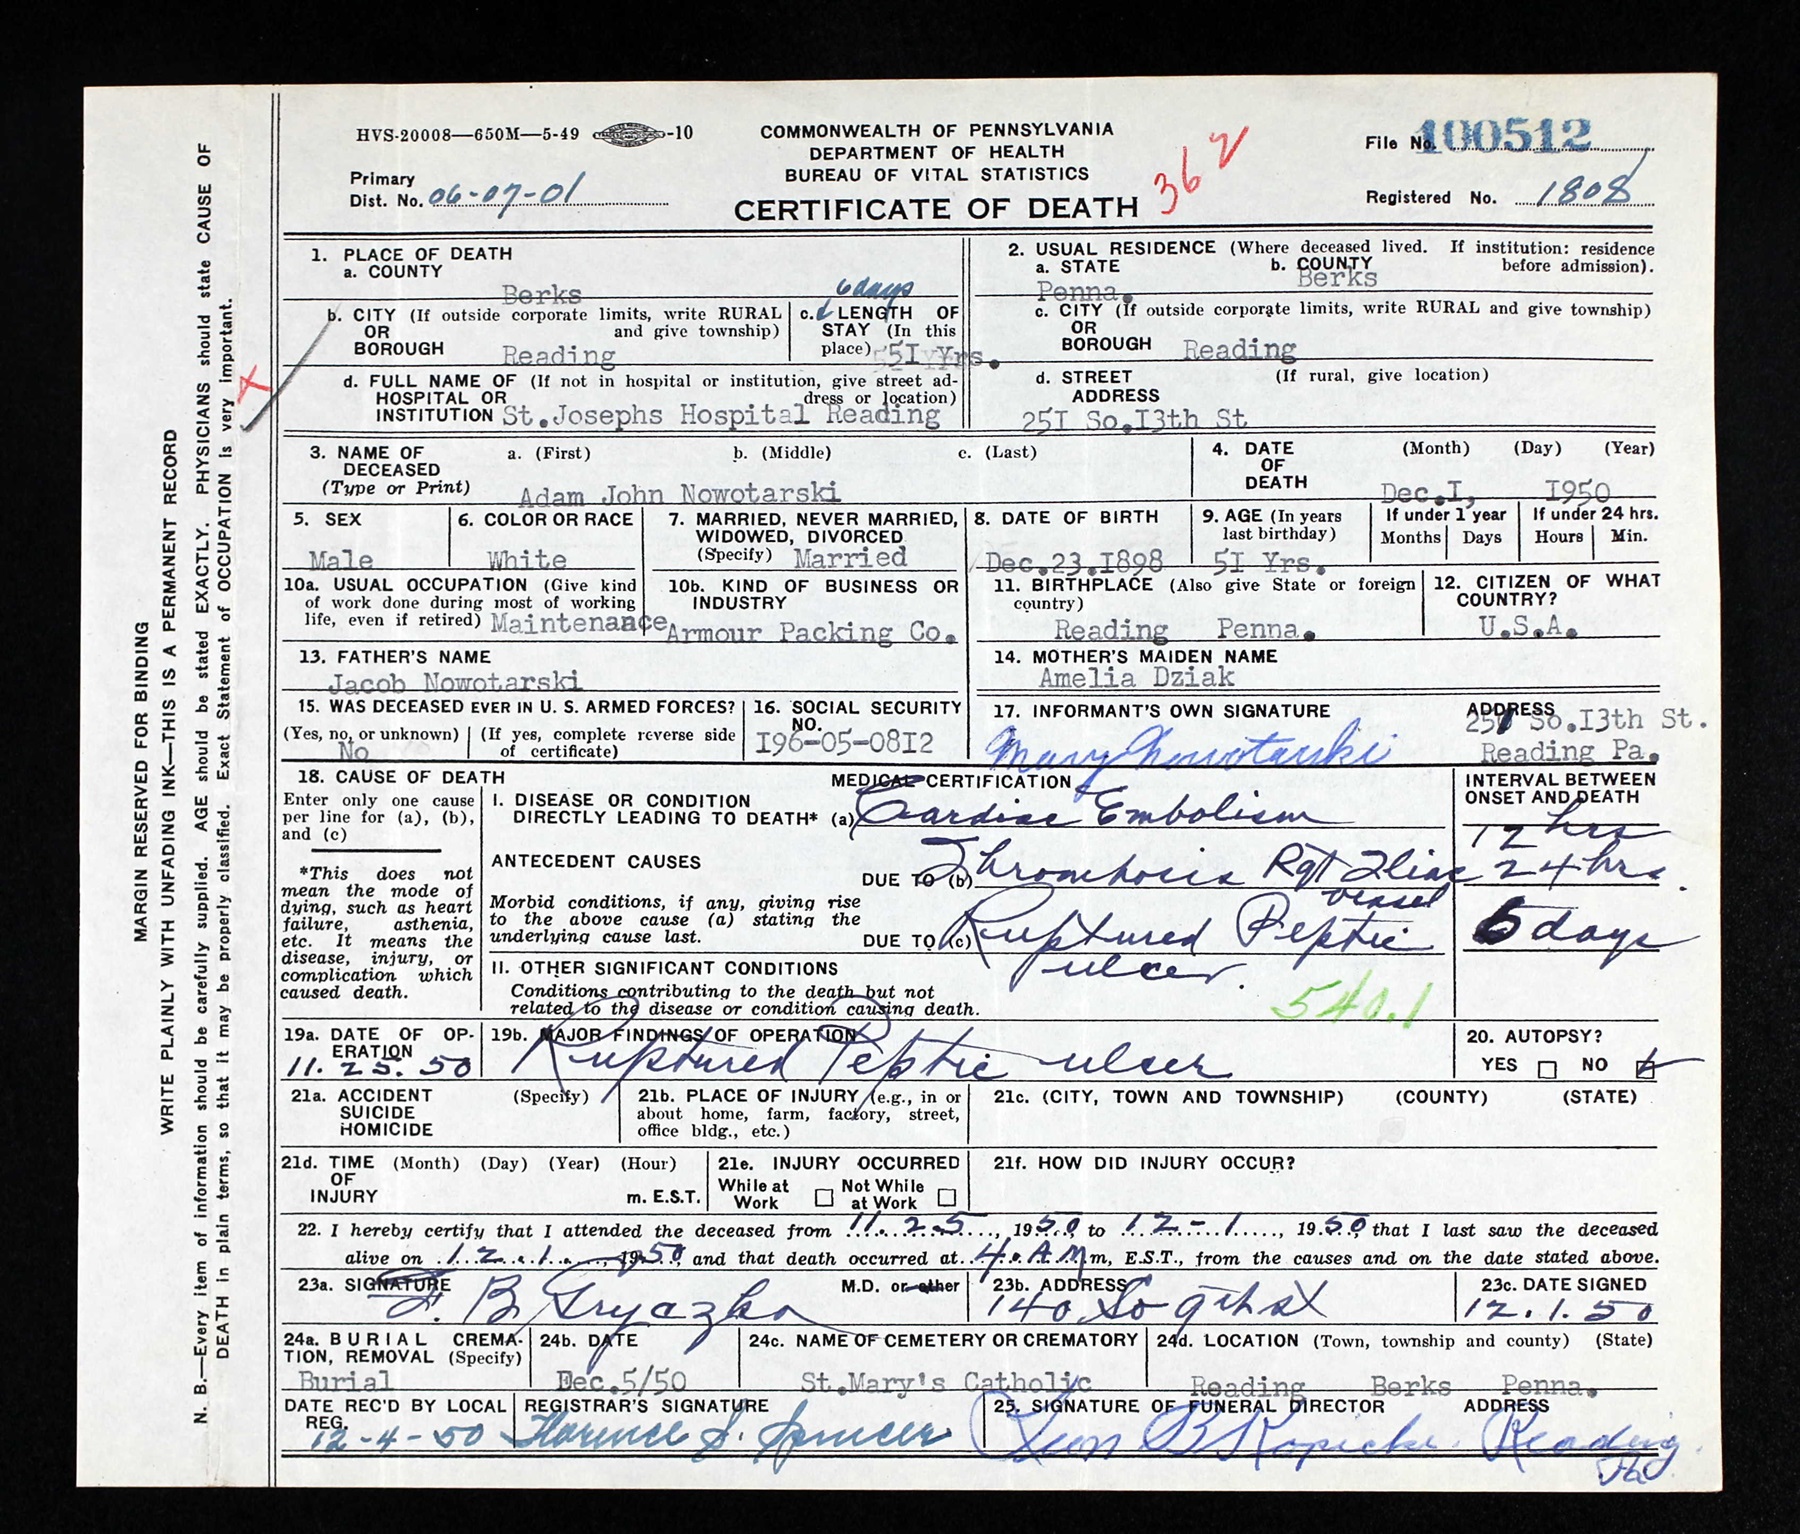 HVS-20008—650M—5-49 -10
COMMONWEALTH OF PENNSYLVANIA
DEPARTMENT OF HEALTH
BUREAU OF VITAL STATISTICS
CERTIFICATE OF DEATH
362
File No. 100512
Primary
Dist. No. 06-07-01
Registered No. 1808
MARGIN RESERVED FOR BINDING
WRITE PLAINLY WITH UNFADING INK—THIS IS A PERMANENT RECORD
N. B.—Every item of information should be carefully supplied. AGE should be stated EXACTLY. PHYSICIANS should state CAUSE OF
DEATH in plain terms, so that it may be properly classified. Exact Statement of OCCUPATION is very important.
1. PLACE OF DEATH
a. COUNTY
Berks
b. CITY (If outside corporate limits, write RURAL
OR and give township)
BOROUGH Reading
6 days
c. LENGTH OF
STAY (In this
place) 51 Yrs.
d. FULL NAME OF (If not in hospital or institution, give street ad-
HOSPITAL OR dress or location)
INSTITUTION St.Josephs Hospital Reading
2. USUAL RESIDENCE (Where deceased lived. If institution: residence
a. STATE b. COUNTY before admission).
Penna. Berks
c. CITY (If outside corporate limits, write RURAL and give township)
OR
BOROUGH Reading
d. STREET (If rural, give location)
ADDRESS
251 So.13th St
3. NAME OF a. (First) b. (Middle) c. (Last)
DECEASED
(Type or Print) Adam John Nowotarski
4. DATE (Month) (Day) (Year)
OF
DEATH Dec.1, 1950
5. SEX
Male
6. COLOR OR RACE
White
7. MARRIED, NEVER MARRIED,
WIDOWED, DIVORCED
(Specify) Married
8. DATE OF BIRTH
Dec.23.1898
9. AGE (In years
last birthday)
51 Yrs.
If under 1 year
Months Days
If under 24 hrs.
Hours Min.
10a. USUAL OCCUPATION (Give kind
of work done during most of working
life, even if retired) Maintenance
10b. KIND OF BUSINESS OR
INDUSTRY
Armour Packing Co.
11. BIRTHPLACE (Also give State or foreign
country)
Reading Penna.
12. CITIZEN OF WHAT
COUNTRY?
U.S.A.
13. FATHER'S NAME
Jacob Nowotarski
14. MOTHER'S MAIDEN NAME
Amelia Dziak
15. WAS DECEASED EVER IN U. S. ARMED FORCES?
(Yes, no, or unknown) (If yes, complete reverse side
No of certificate)
16. SOCIAL SECURITY
NO.
196-05-0812
17. INFORMANT'S OWN SIGNATURE
Mary Nowotarski
ADDRESS
251 So.13th St.
Reading Pa.
18. CAUSE OF DEATH
Enter only one cause
per line for (a), (b),
and (c)
*This does not
mean the mode of
dying, such as heart
failure, asthenia,
etc. It means the
disease, injury, or
complication which
caused death.
MEDICAL CERTIFICATION
I. DISEASE OR CONDITION
DIRECTLY LEADING TO DEATH* (a) Cardiac Embolism
ANTECEDENT CAUSES
DUE TO (b) Thrombosis Rgt Iliac
vessel
Morbid conditions, if any, giving rise
to the above cause (a) stating the
underlying cause last.
DUE TO (c) Ruptured Peptic
ulcer.
INTERVAL BETWEEN
ONSET AND DEATH
12 hrs
24 hrs.
6 days
II. OTHER SIGNIFICANT CONDITIONS
Conditions contributing to the death but not
related to the disease or condition causing death.
540.1
19a. DATE OF OP-
ERATION
11.25.50
19b. MAJOR FINDINGS OF OPERATION
Ruptured Peptic ulcer
20. AUTOPSY?
YES NO
21a. ACCIDENT (Specify)
SUICIDE
HOMICIDE
21b. PLACE OF INJURY (e.g., in or
about home, farm, factory, street,
office bldg., etc.)
21c. (CITY, TOWN AND TOWNSHIP) (COUNTY) (STATE)
21d. TIME (Month) (Day) (Year) (Hour)
OF
INJURY m. E.S.T.
21e. INJURY OCCURRED
While at Not While
Work at Work
21f. HOW DID INJURY OCCUR?
22. I hereby certify that I attended the deceased from 11.25, 1950, to 12-1, 1950, that I last saw the deceased
alive on 12.1., 1950, and that death occurred at 4.AM m, E.S.T., from the causes and on the date stated above.
23a. SIGNATURE M.D. or other
F. B. Gryczka
23b. ADDRESS
140 So 9th st
23c. DATE SIGNED
12.1.50
24a. BURIAL CREMA-
TION, REMOVAL (Specify)
Burial
24b. DATE
Dec.5/50
24c. NAME OF CEMETERY OR CREMATORY
St.Mary's Catholic
24d. LOCATION (Town, township and county) (State)
Reading Berks Penna.
DATE REC'D BY LOCAL
REG.
12-4-50
REGISTRAR'S SIGNATURE
Florence S. Spencer
25. SIGNATURE OF FUNERAL DIRECTOR ADDRESS
Leon B Kopicki Reading
Pa